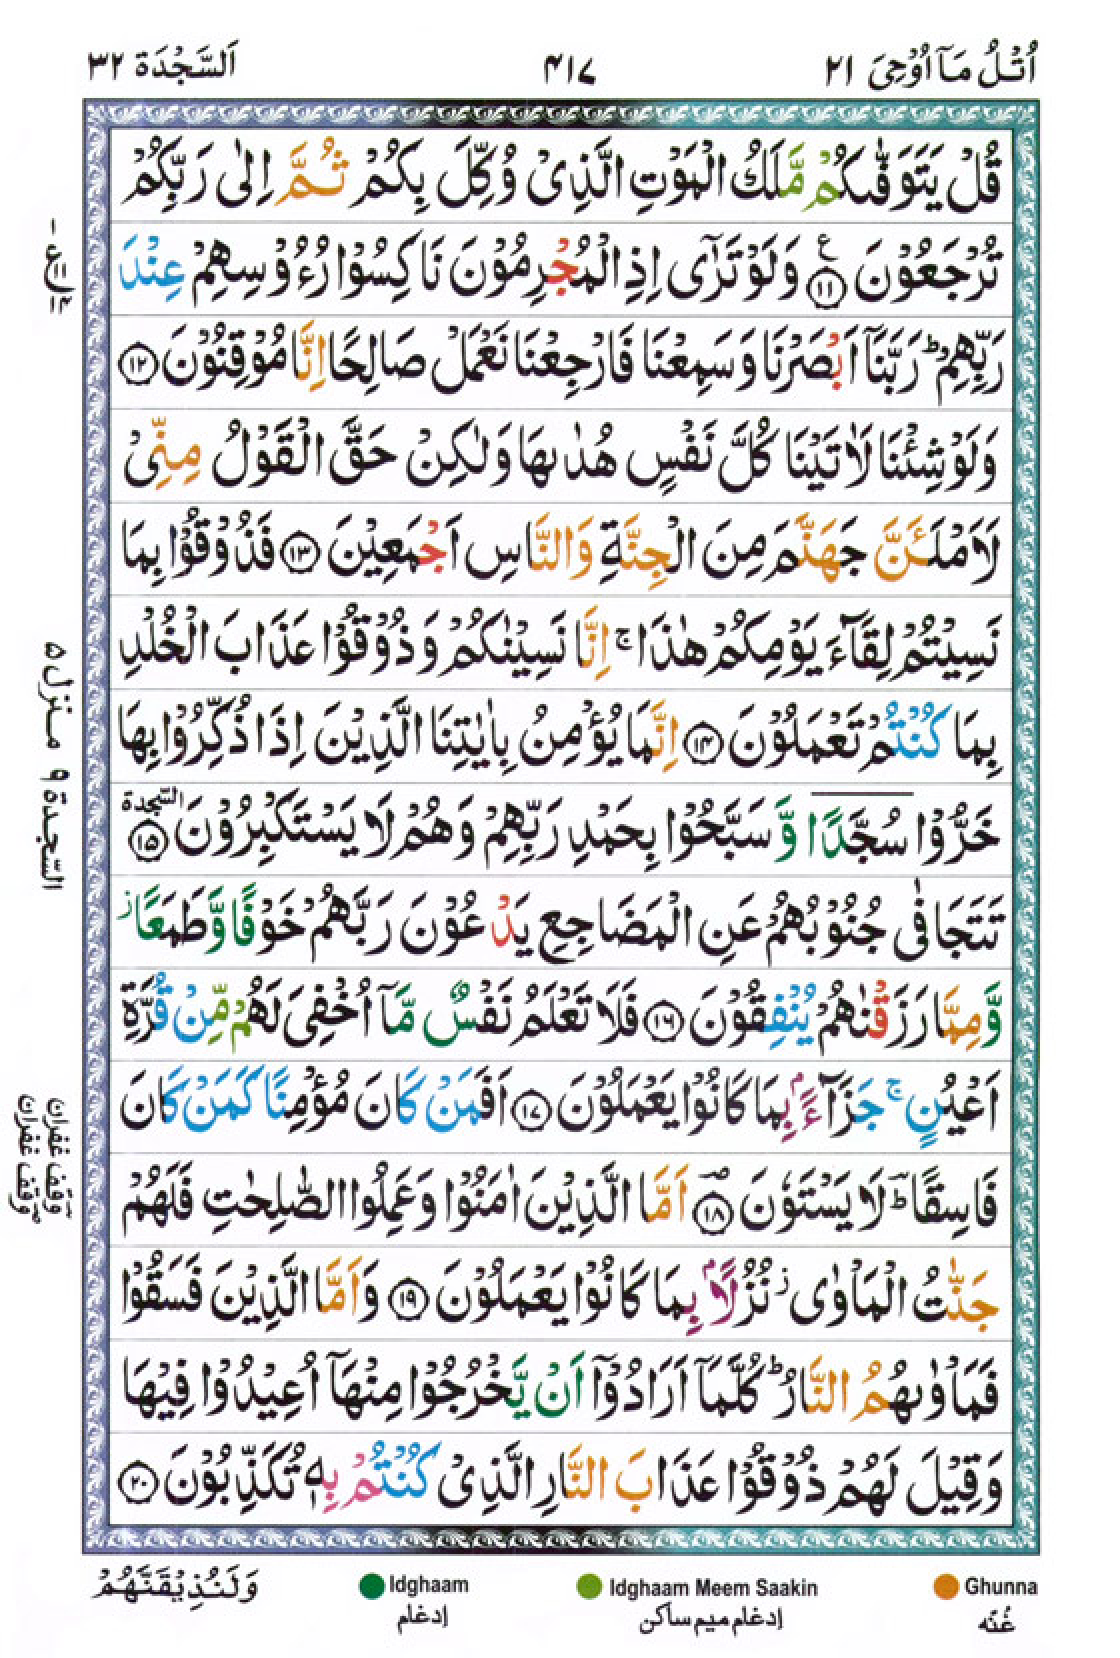 اُتْلُ مَآ اُوْحِیَ ۲۱
۴۱۷
اَلسَّجْدَة ۳۲
قُلْ یَتَوَفّٰىكُمْ مَّلَكُ الْمَوْتِ الَّذِیْ وُكِّلَ بِكُمْ ثُمَّ اِلٰى رَبِّكُمْ
تُرْجَعُوْنَ ۝۱۱ ع وَلَوْ تَرٰۤى اِذِ الْمُجْرِمُوْنَ نَاكِسُوْا رُءُوْسِهِمْ عِنْدَ
رَبِّهِمْ ؕ رَبَّنَاۤ اَبْصَرْنَا وَسَمِعْنَا فَارْجِعْنَا نَعْمَلْ صَالِحًا اِنَّا مُوْقِنُوْنَ ۝۱۲
وَلَوْ شِئْنَا لَاٰتَیْنَا كُلَّ نَفْسٍ هُدٰىهَا وَلٰكِنْ حَقَّ الْقَوْلُ مِنِّیْ
لَاَمْلَـَٔنَّ جَهَنَّمَ مِنَ الْجِنَّةِ وَالنَّاسِ اَجْمَعِیْنَ ۝۱۳ فَذُوْقُوْا بِمَا
نَسِیْتُمْ لِقَآءَ یَوْمِكُمْ هٰذَا ۚ اِنَّا نَسِیْنٰكُمْ وَذُوْقُوْا عَذَابَ الْخُلْدِ
بِمَا كُنْتُمْ تَعْمَلُوْنَ ۝۱۴ اِنَّمَا یُؤْمِنُ بِاٰیٰتِنَا الَّذِیْنَ اِذَا ذُكِّرُوْا بِهَا
خَرُّوْا سُجَّدًا وَّسَبَّحُوْا بِحَمْدِ رَبِّهِمْ وَهُمْ لَا یَسْتَكْبِرُوْنَ ۝۱۵ السجدة
تَتَجَافٰى جُنُوْبُهُمْ عَنِ الْمَضَاجِعِ یَدْعُوْنَ رَبَّهُمْ خَوْفًا وَّطَمَعًا ز
وَّمِمَّا رَزَقْنٰهُمْ یُنْفِقُوْنَ ۝۱۶ فَلَا تَعْلَمُ نَفْسٌ مَّاۤ اُخْفِیَ لَهُمْ مِّنْ قُرَّةِ
اَعْیُنٍ ۚ جَزَآءًۢ بِمَا كَانُوْا یَعْمَلُوْنَ ۝۱۷ اَفَمَنْ كَانَ مُؤْمِنًا كَمَنْ كَانَ
فَاسِقًا ؔؕ لَا یَسْتَوٗنَ ۝۱۸ اَمَّا الَّذِیْنَ اٰمَنُوْا وَعَمِلُوا الصّٰلِحٰتِ فَلَهُمْ
جَنّٰتُ الْمَاْوٰى ز نُزُلًۢا بِمَا كَانُوْا یَعْمَلُوْنَ ۝۱۹ وَاَمَّا الَّذِیْنَ فَسَقُوْا
فَمَاْوٰىهُمُ النَّارُ ؕ كُلَّمَاۤ اَرَادُوْۤا اَنْ یَّخْرُجُوْا مِنْهَاۤ اُعِیْدُوْا فِیْهَا
وَقِیْلَ لَهُمْ ذُوْقُوْا عَذَابَ النَّارِ الَّذِیْ كُنْتُمْ بِهٖ تُكَذِّبُوْنَ ۝۲۰
السّجدة ۹ منزل ۵
وقف غفران
وقف غفران
Ghunna
غُنّه
Idghaam Meem Saakin
إدغام ميم ساكن
Idghaam
إدغام
وَلَنُذِیْقَنَّهُمْ